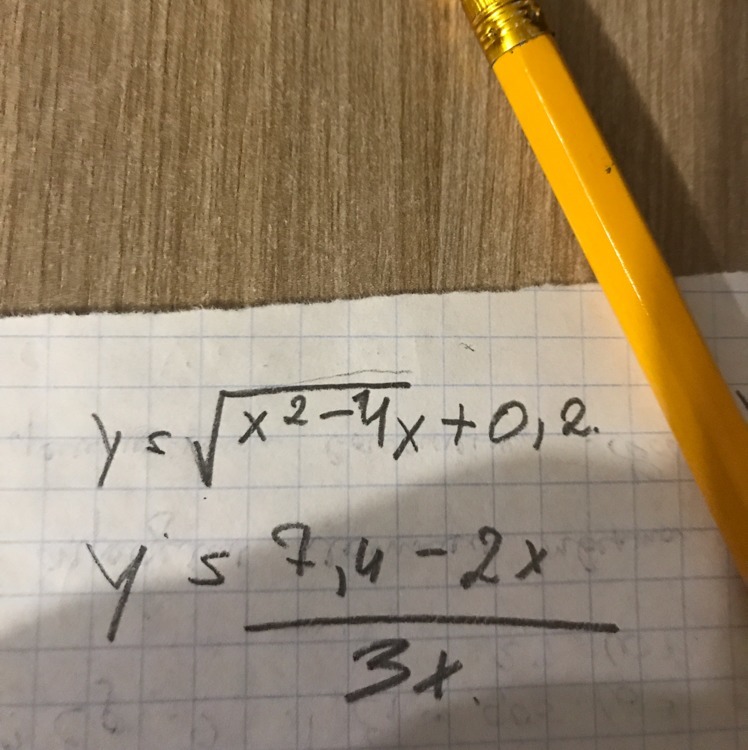 y = √x² - 4x + 0,2.
y = 7,4 - 2x
3x